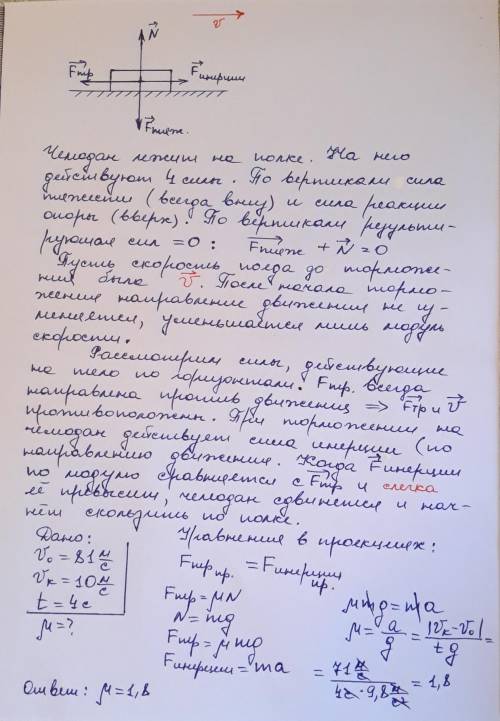 v⃗
N⃗
F⃗тр F⃗инерции
F⃗тяж.
Чемодан лежит на полке. На него
действуют 4 силы. По вертикали сила
тяжести (всегда вниз) и сила реакции
опоры (вверх). По вертикали результи-
рующая сил =0: F⃗тяж + N⃗ = 0
Пусть скорость поезда до торможе-
ния была v⃗. После начала тормо-
жения направление движения не из-
меняется, уменьшается лишь модуль
скорости.
Рассмотрим силы, действующие
на тело по горизонтали. Fтр. всегда
направлена против движения ⇒ F⃗тр и v⃗
противоположны. При торможении на
чемодан действует сила инерции (по
направлению движения. Когда F⃗инерции
по модулю сравняется с F⃗тр и слегка
её превысит, чемодан сдвинется и нач-
нёт скользить по полке.
Дано:
v₀ = 81 м/с
vк = 10 м/с
t = 4 с
μ = ?
Уравнение в проекциях:
Fтр пр. = Fинерции пр.
Fтр = μN
N = mg
Fтр = μmg
Fинерции = ma
μmg = ma
μ = a/g = |vк - v₀|/tg =
= 71 м/с / 4с · 9,8 м/с² = 1,8
Ответ: μ = 1,8